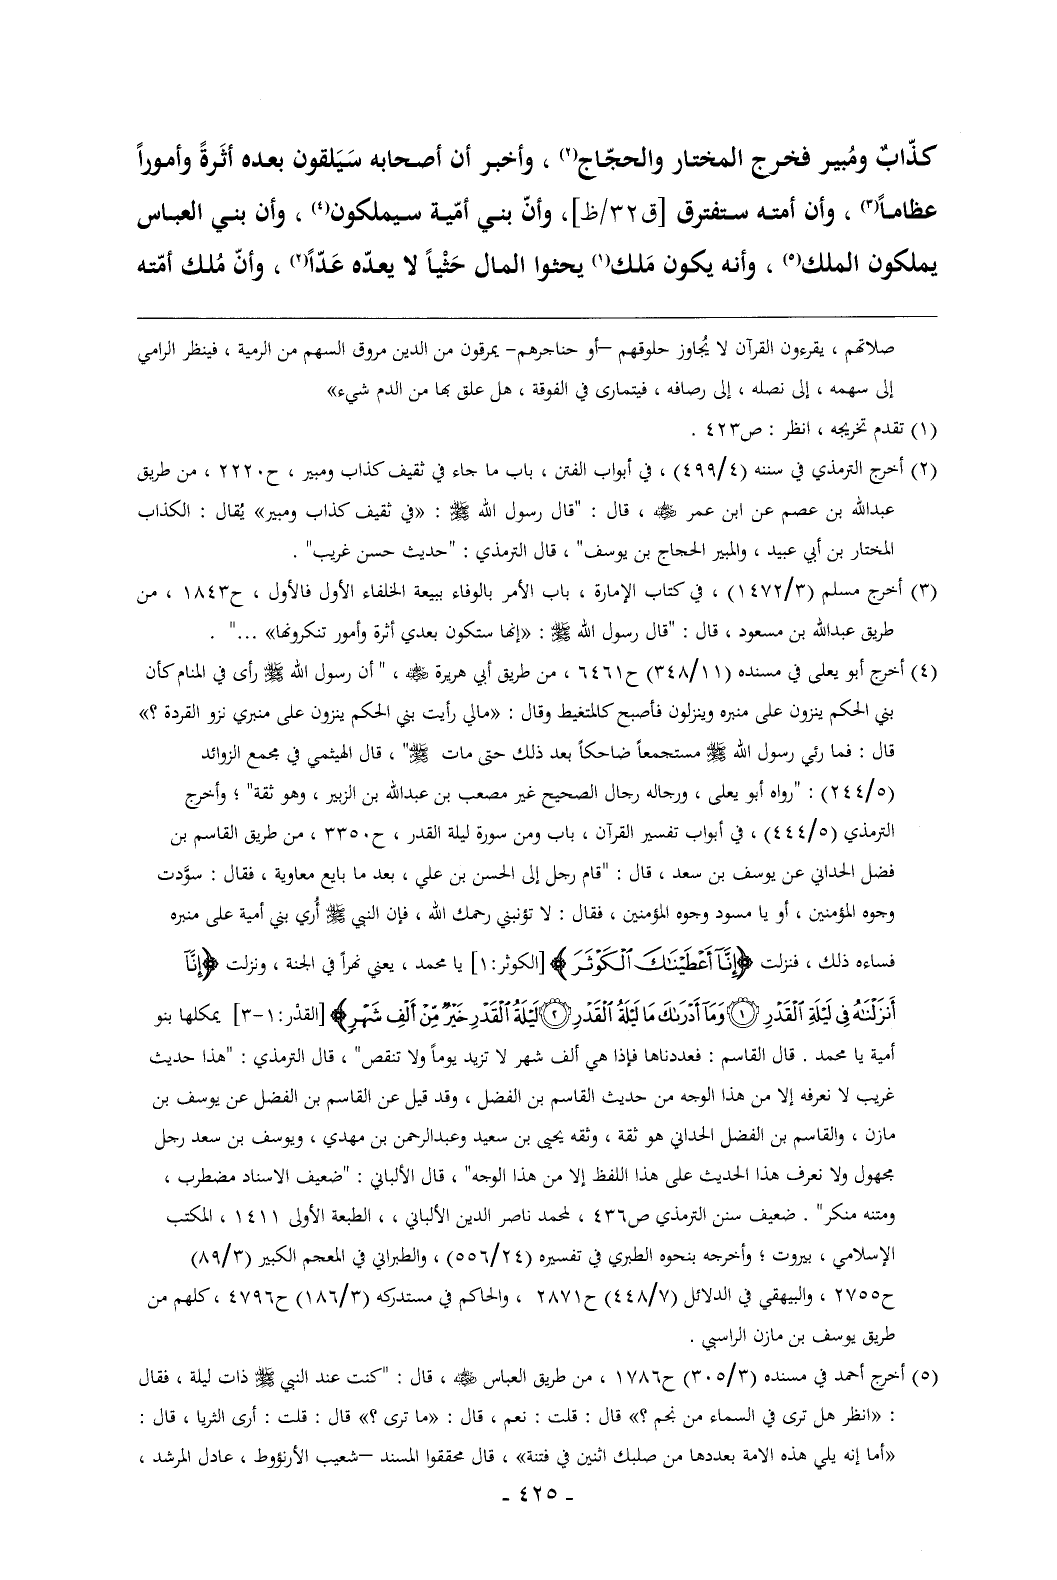 كذّابٌ ومُبير فخرج المختار والحجّاج(٢) ، وأخبر أن أصحابه سَيَلقون بعده أثَرةً وأموراً
عظاماً(٣) ، وأن أمته ستفترق [ق٣٢/ظ]، وأنّ بني أمّية سيملكون(٤) ، وأن بني العباس
يملكون الملك(٥) ، وأنه يكون مَلك(١) يحثوا المال حَثْياً لا يعدّه عَدّاً(٢) ، وأنّ مُلك أمّته
صلاتهم ، يقرءون القرآن لا يُجاوز حلوقهم –أو حناجرهم– يمرقون من الدين مروق السهم من الرمية ، فينظر الرامي
إلى سهمه ، إلى نصله ، إلى رصافه ، فيتمارى في الفوقة ، هل علق بها من الدم شيء»
(١) تقدم تخريجه ، انظر : ص٤٢٣ .
(٢) أخرج الترمذي في سننه (٤٩٩/٤) ، في أبواب الفتن ، باب ما جاء في ثقيف كذاب ومبير ، ح٢٢٢٠ ، من طريق
عبدالله بن عصم عن ابن عمر ﵁ ، قال : "قال رسول الله ﷺ : «في ثقيف كذاب ومبير» يُقال : الكذاب
المختار بن أبي عبيد ، والمبير الحجاج بن يوسف" ، قال الترمذي : "حديث حسن غريب" .
(٣) أخرج مسلم (١٤٧٢/٣) ، في كتاب الإمارة ، باب الأمر بالوفاء ببيعة الخلفاء الأول فالأول ، ح١٨٤٣ ، من
طريق عبدالله بن مسعود ، قال : "قال رسول الله ﷺ : «إنها ستكون بعدي أثرة وأمور تنكرونها» ..." .
(٤) أخرج أبو يعلى في مسنده (٣٤٨/١١) ح٦٤٦١ ، من طريق أبي هريرة ﵁ ، " أن رسول الله ﷺ رأى في المنام كأن
بني الحكم ينزون على منبره وينزلون فأصبح كالمتغيط وقال : «مالي رأيت بني الحكم ينزون على منبري نزو القردة ؟»
قال : فما رئي رسول الله ﷺ مستجمعاً ضاحكاً بعد ذلك حتى مات ﷺ" ، قال الهيثمي في مجمع الزوائد
(٢٤٤/٥) : "رواه أبو يعلى ، ورجاله رجال الصحيح غير مصعب بن عبدالله بن الزبير ، وهو ثقة" ؛ وأخرج
الترمذي (٤٤٤/٥) ، في أبواب تفسير القرآن ، باب ومن سورة ليلة القدر ، ح٣٣٥٠ ، من طريق القاسم بن
فضل الحداني عن يوسف بن سعد ، قال : "قام رجل إلى الحسن بن علي ، بعد ما بايع معاوية ، فقال : سوَّدت
وجوه المؤمنين ، أو يا مسود وجوه المؤمنين ، فقال : لا تؤنبني رحمك الله ، فإن النبي ﷺ أُري بني أمية على منبره
فساءه ذلك ، فنزلت ﴿إِنَّآ أَعْطَيْنَٰكَ ٱلْكَوْثَرَ﴾ [الكوثر:١] يا محمد ، يعني نهراً في الجنة ، ونزلت ﴿إِنَّآ
أَنزَلْنَٰهُ فِى لَيْلَةِ ٱلْقَدْرِ ١ وَمَآ أَدْرَىٰكَ مَا لَيْلَةُ ٱلْقَدْرِ ٢ لَيْلَةُ ٱلْقَدْرِ خَيْرٌ مِّنْ أَلْفِ شَهْرٍ﴾ [القدْر:١-٣] يمكلها بنو
أمية يا محمد . قال القاسم : فعددناها فإذا هي ألف شهر لا تزيد يوماً ولا تنقص" ، قال الترمذي : "هذا حديث
غريب لا نعرفه إلا من هذا الوجه من حديث القاسم بن الفضل ، وقد قيل عن القاسم بن الفضل عن يوسف بن
مازن ، والقاسم بن الفضل الحداني هو ثقة ، وثقه يحيى بن سعيد وعبدالرحمن بن مهدي ، ويوسف بن سعد رجل
مجهول ولا نعرف هذا الحديث على هذا اللفظ إلا من هذا الوجه" ، قال الألباني : "ضعيف الاسناد مضطرب ،
ومتنه منكر" . ضعيف سنن الترمذي ص٤٣٦ ، لمحمد ناصر الدين الألباني ، ، الطبعة الأولى ١٤١١ ، المكتب
الإسلامي ، بيروت ؛ وأخرجه بنحوه الطبري في تفسيره (٥٥٦/٢٤) ، والطبراني في المعجم الكبير (٨٩/٣)
ح٢٧٥٥ ، والبيهقي في الدلائل (٤٤٨/٧) ح٢٨٧١ ، والحاكم في مستدركه (١٨٦/٣) ح٤٧٩٦ ، كلهم من
طريق يوسف بن مازن الراسبي .
(٥) أخرج أحمد في مسنده (٣٠٥/٣) ح١٧٨٦ ، من طريق العباس ﵁ ، قال : "كنت عند النبي ﷺ ذات ليلة ، فقال
: «انظر هل ترى في السماء من نجم ؟» قال : قلت : نعم ، قال : «ما ترى ؟» قال : قلت : أرى الثريا ، قال :
«أما إنه يلي هذه الامة بعددها من صلبك اثنين في فتنة» ، قال محققوا المسند –شعيب الأرنؤوط ، عادل المرشد ،
- ٤٢٥ -